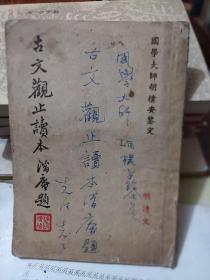 國學大師胡樸安鑒定
古文觀止讀本 澹盦題
國學大師 胡樸安
古文觀止讀本澹盦題
明清文